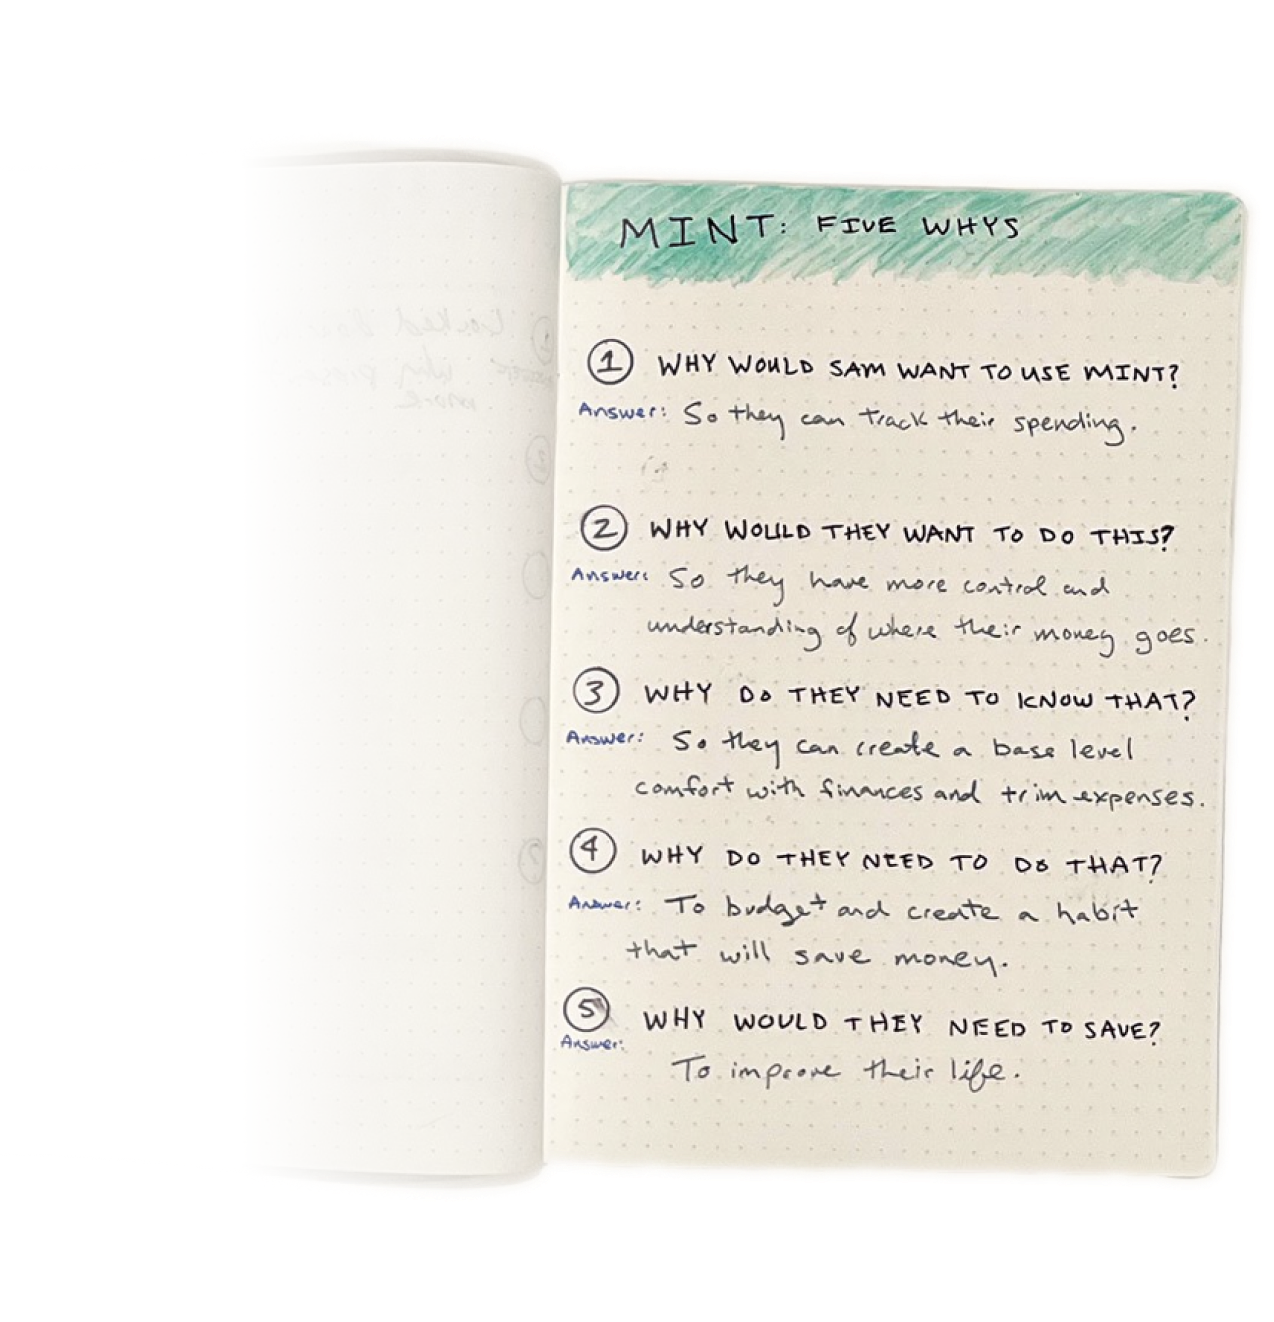 MINT: FIVE WHYS
1 WHY WOULD SAM WANT TO USE MINT?
Answer: So they can track their spending.
2 WHY WOULD THEY WANT TO DO THIS?
Answer: So they have more control and
understanding of where their money goes.
3 WHY DO THEY NEED TO KNOW THAT?
Answer: So they can create a base level
comfort with finances and trim expenses.
4 WHY DO THEY NEED TO DO THAT?
Answer: To budget and create a habit
that will save money.
5 WHY WOULD THEY NEED TO SAVE?
Answer:
To improve their life.